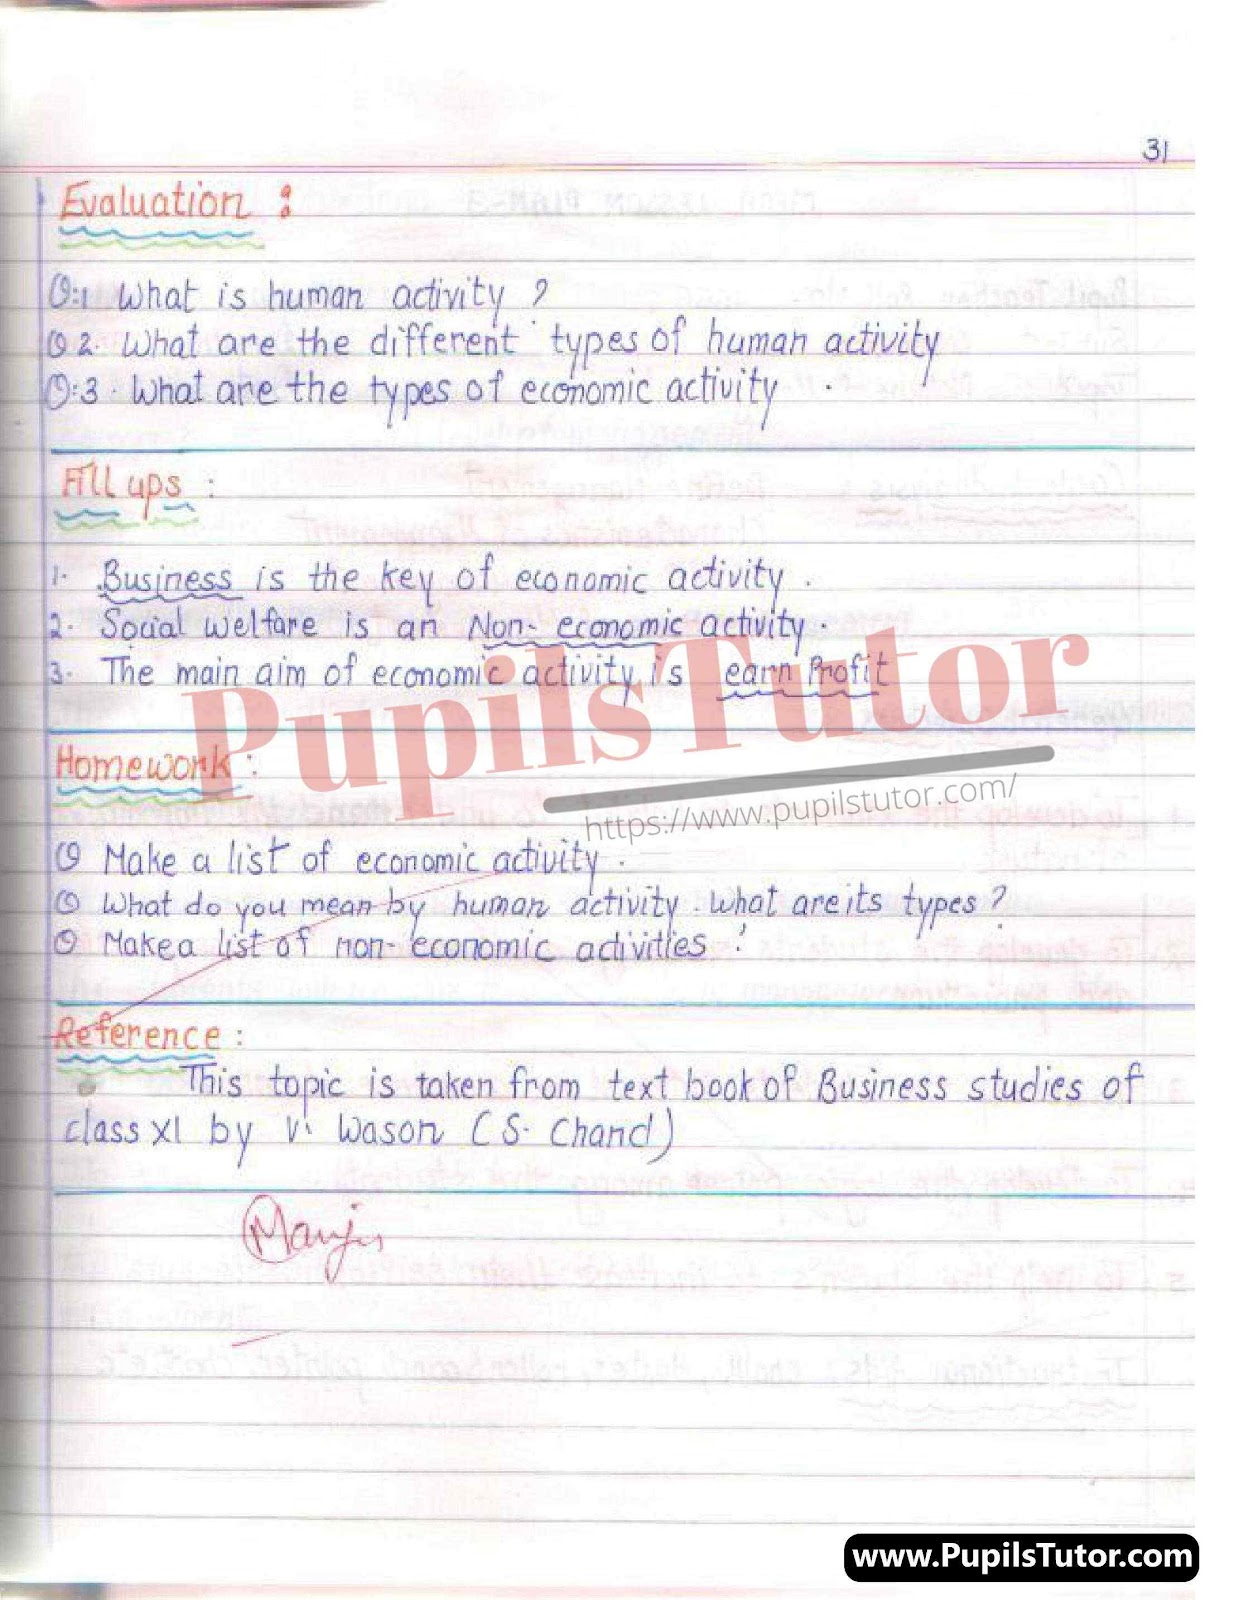 31
Evaluation :
Q:1 What is human activity ?
Q 2. What are the different types of human activity
Q:3. What are the types of economic activity .
Fill ups :
1. Business is the key of economic activity .
2. Social welfare is an Non-economic activity.
3. The main aim of economic activity is earn Profit
PupilsTutor
https://www.pupilstutor.com/
Homework :
Q Make a list of economic activity .
Q What do you mean by human activity . What are its types ?
Q Make a list of non-economic activities !
Reference :
This topic is taken from text book of Business studies of
class XI by V. Wason (S. Chand)
Manju
www.PupilsTutor.com